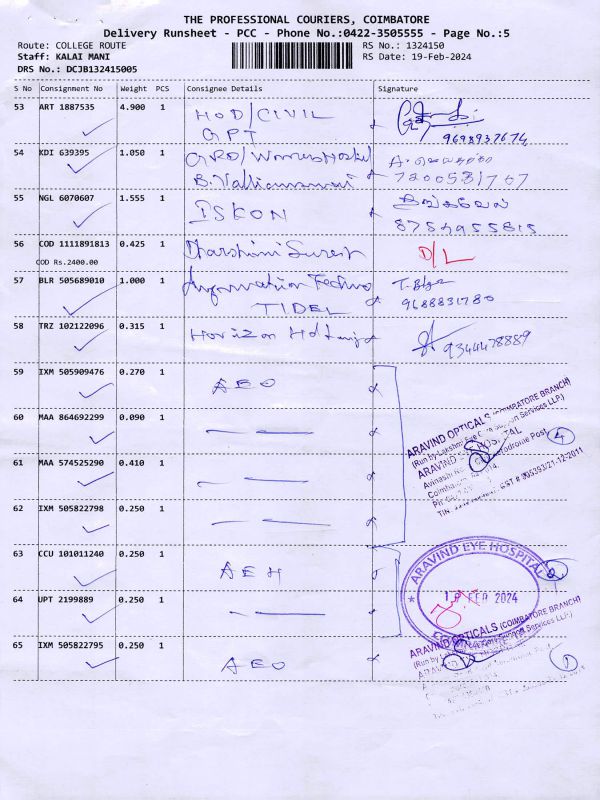 THE PROFESSIONAL COURIERS, COIMBATORE
Delivery Runsheet - PCC - Phone No.:0422-3505555 - Page No.:5
Route: COLLEGE ROUTE
RS No.: 1324150
Staff: KALAI MANI
RS Date: 19-Feb-2024
DRS No.: DCJB132415005
S No Consignment No Weight PCS Consignee Details Signature
53 ART 1887535 4.900 1 HOD/CIVIL
GPT
9698937674
54 KDI 639395 1.050 1 GRD/Womens Hostel
B.
7200531707
55 NGL 6070607 1.555 1 ISKON
8754955815
56 COD 1111891813 0.425 1 Dharshini Suresh D/L
COD Rs.2400.00
57 BLR 505689010 1.000 1 Information Techno
TIDEL 9688831780
58 TRZ 102122096 0.315 1 Horizon 9344478889
59 IXM 505909476 0.270 1 AEO
60 MAA 864692299 0.090 1
61 MAA 574525290 0.410 1
ARAVIND OPTICALS (COIMBATORE BRANCH)
(Run by Lakshmi Eye Care Support Services LLP.)
Avinashi
Aerodrome Post,
4
62 IXM 505822798 0.250 1
63 CCU 101011240 0.250 1 AEH
ARAVIND EYE HOSPITAL
FEB 2024
2
64 UPT 2199889 0.250 1
65 IXM 505822795 0.250 1 AEO
ARAVIND OPTICALS (COIMBATORE BRANCH)
(Run by Lakshmi Eye Care Support Services LLP.)
1